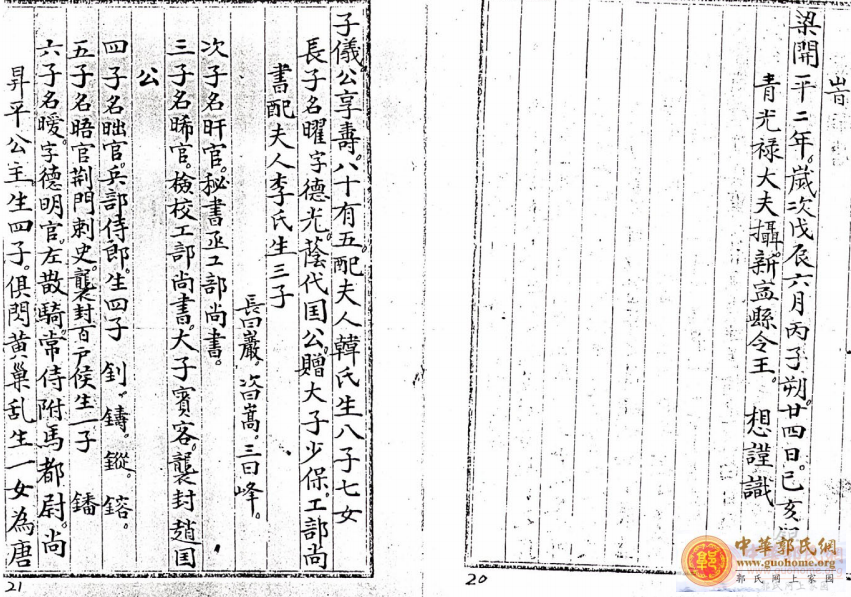 梁開平二年。歲次戊辰六月丙子朔。廿四日。己亥
青光禄大夫攝新孟縣令王。想謹識
20
子儀公享壽。八十有五。配夫人韓氏生八子七女
長子名曜字德光。蔭代国公。贈大子少保。工部尚
書配夫人李氏生三子
長曰巖。次曰嵩。三曰峰。
次子名旰官。秘書丞工部尚書。
三子名晞官。檢校工部尚書。大子賓客。襲封趙国
公
四子名昢官。兵部侍郎。生四子 釗。鑄。鏦。鎔。
五子名晤官荆門刺史。襲封百户侯生一子 鐇
六子名曖。字德明官。左散騎。常侍附馬都尉。尚
昇平公主。生四子。俱閃黄巢乱生一女為唐
21
中華郭氏網
www.guohome.org
郭氏网上家园